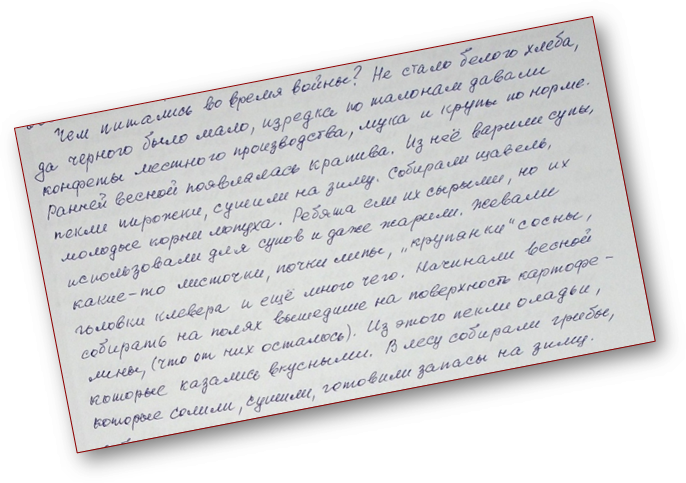 Чем питались во время войны? Не стало белого хлеба,
да черного было мало, изредка по талонам давали
конфеты местного производства, мука и крупы по норме.
Ранней весной появлялась крапива. Из неё варили супы,
пекли пирожки, сушили на зиму. Собирали щавель,
молодые корни лопуха. Ребята ели их сырыми, но их
использовали для супов и даже жарили. Жевали
какие-то листочки, почки липы, „крупанки" сосны,
головки клевера и ещё много чего. Начинали весной
собирать на полях вышедшие на поверхность картофе-
лины, (что от них осталось). Из этого пекли оладьи,
которые казались вкусными. В лесу собирали грибы,
которые солили, сушили, готовили запасы на зиму.